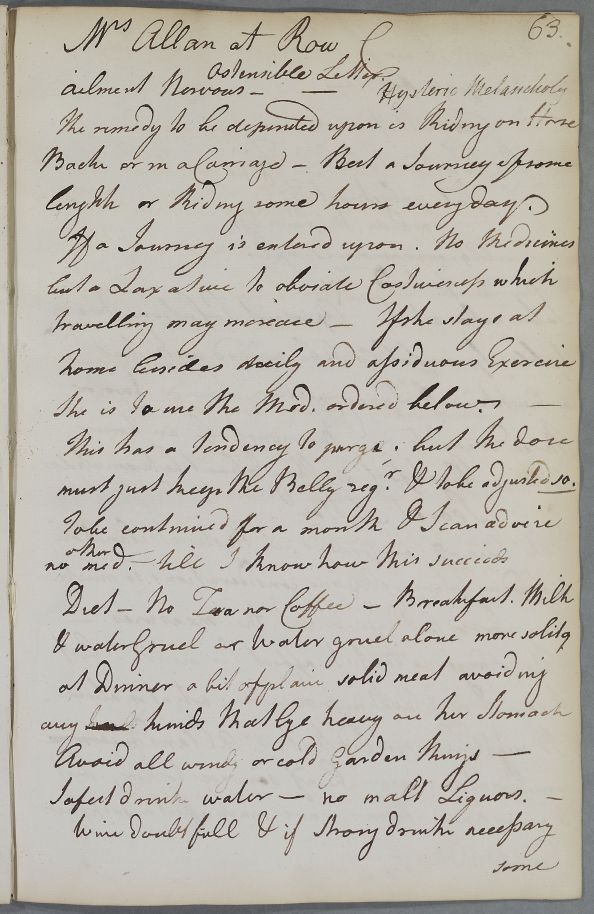 63.
Mrs Allan at Row
Ostensible Letter
ailment Nervous — — Hysteric Melancholy
The remedy to be depended upon is Riding on Horse
Back or in a Carriage — Best a Journey of some
length or Riding some hours every day.
If a Journey is entered upon. No Medicines
but a Laxative to obviate Costiveness which
travelling may increase — If she stays at
home besides daily and assiduous Exercise
She is to use the Med. ordered below. —
This has a tendency to purge. but the dose
must just keep the Belly regr. & to be adjusted so.
To be continued for a month & I can advise
no other med. till I know how this succeeds
Diet — No Tea nor Coffee — Breakfast. Milk
& water Gruel or Water gruel alone more solid
at Dinner a bit of plain solid meat avoiding
any kinds that lye heavy on her Stomach
Avoid all windy or cold Garden things —
Safest drink water — no malt Liquors. —
Wine doubtfull & if Strong drink necessary
some